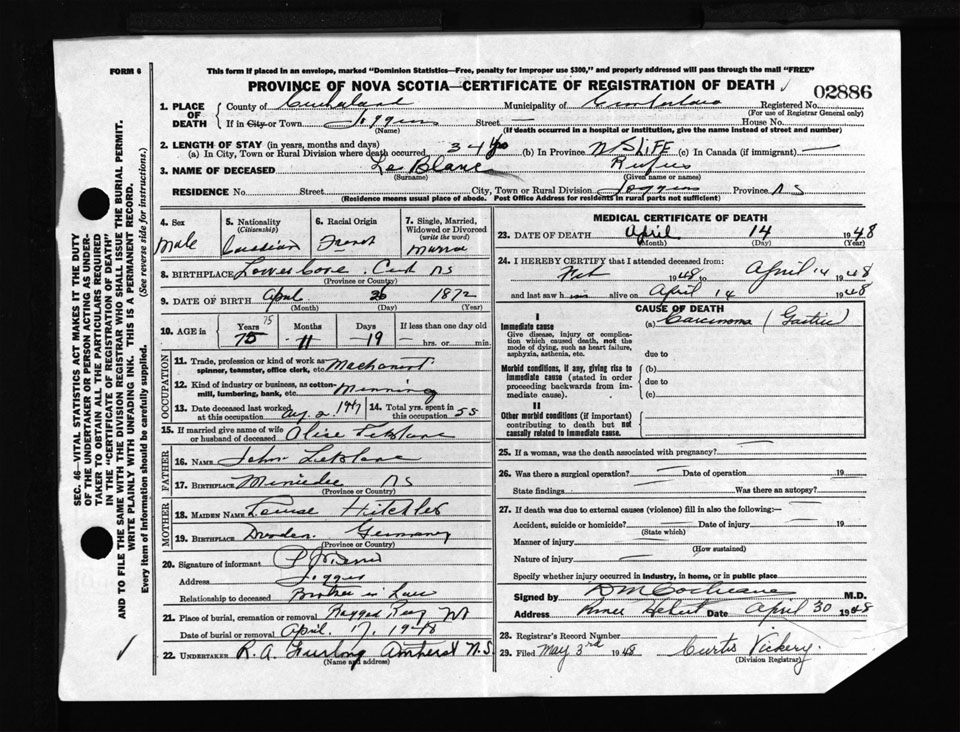 FORM 6
This form if placed in an envelope, marked "Dominion Statistics—Free, penalty for improper use $300," and properly addressed will pass through the mail "FREE"
PROVINCE OF NOVA SCOTIA—CERTIFICATE OF REGISTRATION OF DEATH
02886
1. PLACE OF DEATH County of Cumberland Municipality of Cumberland Registered No.
(For use of Registrar General only)
If in City or Town Joggins Street — House No.
(Name) (If death occurred in a hospital or institution, give the name instead of street and number)
2. LENGTH OF STAY (in years, months and days)
(a) In City, Town or Rural Division where death occurred 34 (b) In Province NS LIFE (c) In Canada (if immigrant) —
3. NAME OF DECEASED Le Blanc Rufus
(Surname) (Given name or names)
RESIDENCE No. Street City, Town or Rural Division Joggins Province NS
(Residence means usual place of abode. Post Office Address for residents in rural parts not sufficient)
4. Sex Male
5. Nationality (Citizenship) Canadian
6. Racial Origin French
7. Single, Married, Widowed or Divorced (write the word)
8. BIRTHPLACE Lower Cove. Cumb NS
(Province or Country)
9. DATE OF BIRTH April 26 1872
(Month) (Day) (Year)
10. AGE in Years 75 75 Months 11 Days 19 If less than one day old — hrs. or min.
OCCUPATION
11. Trade, profession or kind of work as spinner, teamster, office clerk, etc. Machanist
12. Kind of industry or business, as cotton-mill, lumbering, bank, etc. Minning
13. Date deceased last worked at this occupation Aug. 2. 1947
14. Total yrs. spent in this occupation 55
15. If married give name of wife or husband of deceased Alise LeBlanc
FATHER
16. NAME John LeBlanc
17. BIRTHPLACE Minudie NS
(Province or Country)
MOTHER
18. MAIDEN NAME Louise
19. BIRTHPLACE Dresden Germany
(Province or Country)
20. Signature of informant
Address Joggins
Relationship to deceased Brother in Law
21. Place of burial, cremation or removal Ragged Reef NS
Date of burial or removal April 17, 1948
22. UNDERTAKER R. A. Furlong Amherst N.S.
(Name and address)
MEDICAL CERTIFICATE OF DEATH
23. DATE OF DEATH April 14 1948
(Month) (Day) (Year)
24. I HEREBY CERTIFY that I attended deceased from:
Feb 1948 to April 14 1948
and last saw h im alive on April 14 1948
CAUSE OF DEATH
I
Immediate cause (a) Carcinoma (Gastric)
Give disease, injury or complication which caused death, not the mode of dying, such as heart failure, asphyxia, asthenia, etc.
due to
Morbid conditions, if any, giving rise to immediate cause (stated in order proceeding backwards from immediate cause).
(b)
due to
(c)
II
Other morbid conditions (if important) contributing to death but not causally related to immediate cause.
25. If a woman, was the death associated with pregnancy? —
26. Was there a surgical operation? — Date of operation — 19
State findings Was there an autopsy?
27. If death was due to external causes (violence) fill in also the following:—
Accident, suicide or homicide? — Date of injury — 19
(State which)
Manner of injury —
(How sustained)
Nature of injury —
Specify whether injury occurred in industry, in home, or in public place
Signed by D M Cochrane M.D.
Address River Hebert Date April 30 1948
28. Registrar's Record Number
29. Filed May 3rd 1948 Curtis Vickery.
(Division Registrar)
SEC. 46—VITAL STATISTICS ACT MAKES IT THE DUTY OF THE UNDERTAKER OR PERSON ACTING AS UNDERTAKER TO OBTAIN ALL THE PARTICULARS REQUIRED IN THE "CERTIFICATE OF REGISTRATION OF DEATH" AND TO FILE THE SAME WITH THE DIVISION REGISTRAR WHO SHALL ISSUE THE BURIAL PERMIT.
WRITE PLAINLY WITH UNFADING INK. THIS IS A PERMANENT RECORD.
Every item of Information should be carefully supplied. (See reverse side for instructions.)